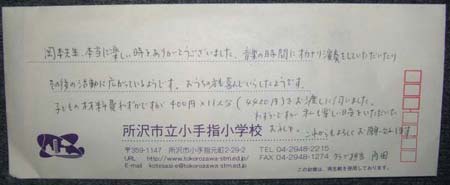 岡本先生、本当に楽しい時をありがとうございました。音楽の時間にオカリナ演奏をしていただいたり
その後の活動に広がっているようです。おうちの方も喜んでいらしたようです。
子どもの材料費わずかですが 400円×11人分(4400円)をお渡し
わずかですが 楽しい日をいただいた
お礼です。これからもよろしくお願いします
所沢市立小手指小学校
〒359-1147 所沢市小手指元町2-29-2
TEL 04-2948-2215
URL http://www.tokorozawa-stm.ed.jp/
FAX 04-2948-1274
E-mail kotesasi-e@tokorozawa-stm.ed.jp
担当
この封筒は、再生紙を使用しております。